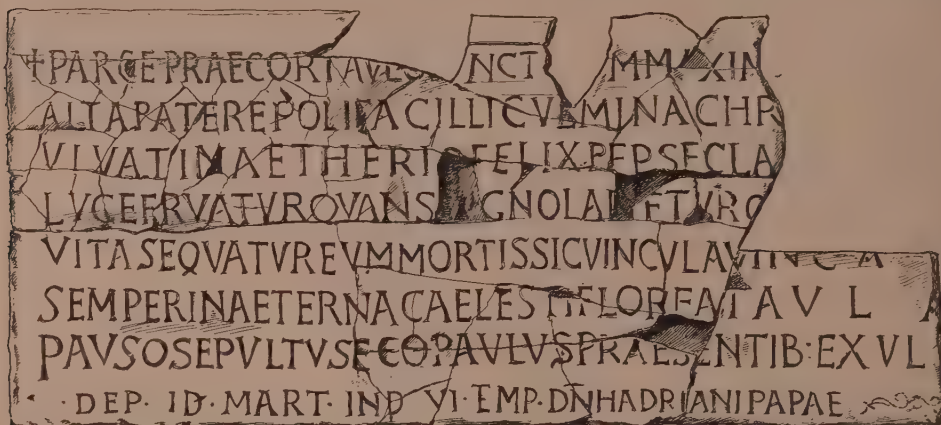 ✝PARCEPRAECORTAVLO NCT MMAXIM
ALTAPATEREPOLIFACILLICVLMINACHR
VIVATINAETHERIOFELIXPEPSECLA
LVCEFRVATVROVANS GNOLAETETVRO
VITASEQVATVREVMMORTISSICVINCVLAVINCA
SEMPERINAETERNACAELESTIFLOREATAVL A
PAVSOSEPVLTVSECOPAVLVSPRAESENTIB·EXVL
·DEP·ID·MART·IND VI·EMP·DN̄HADRIANIPAPAE